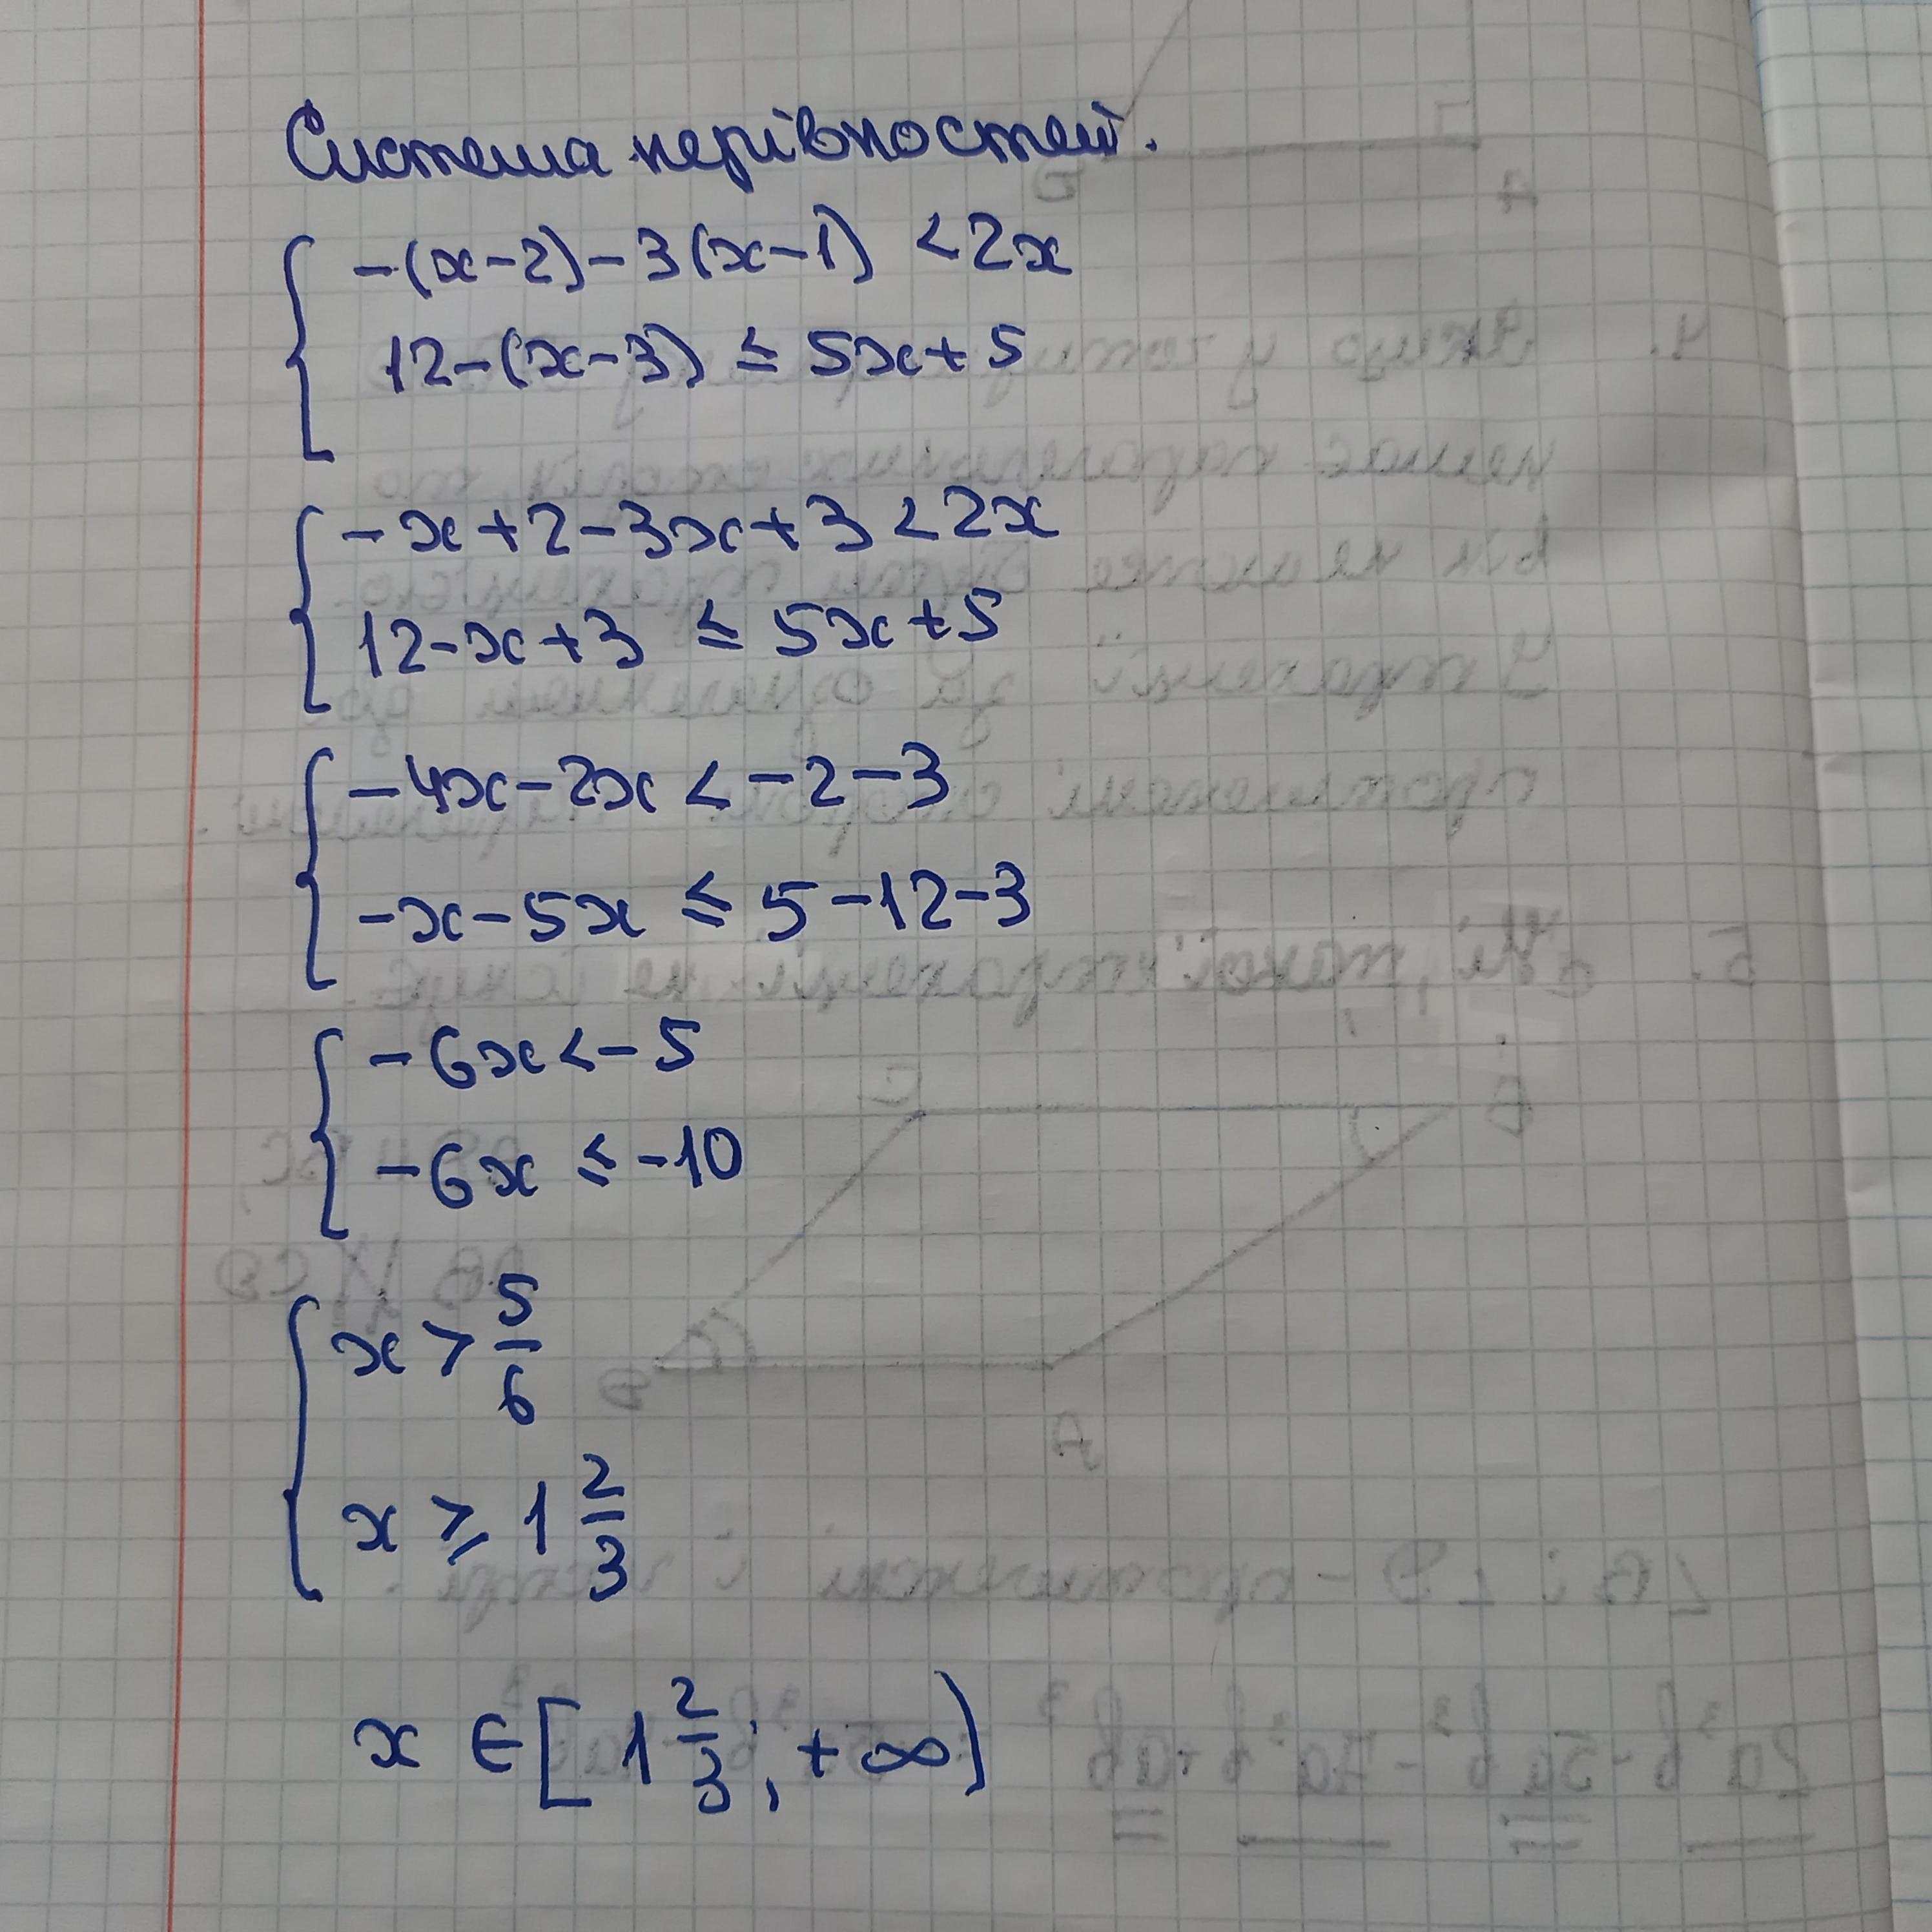 Система нерівностей.
-(x-2)-3(x-1) <2x
12-(x-3) ≤ 5x+5
-x+2-3x+3<2x
12-x+3 ≤ 5x+5
-4x-2x < -2-3
-x-5x ≤ 5-12-3
-6x<-5
-6x ≤ -10
x > 5/6
x ≥ 1 2/3
x ∈ [1 2/3; +∞)